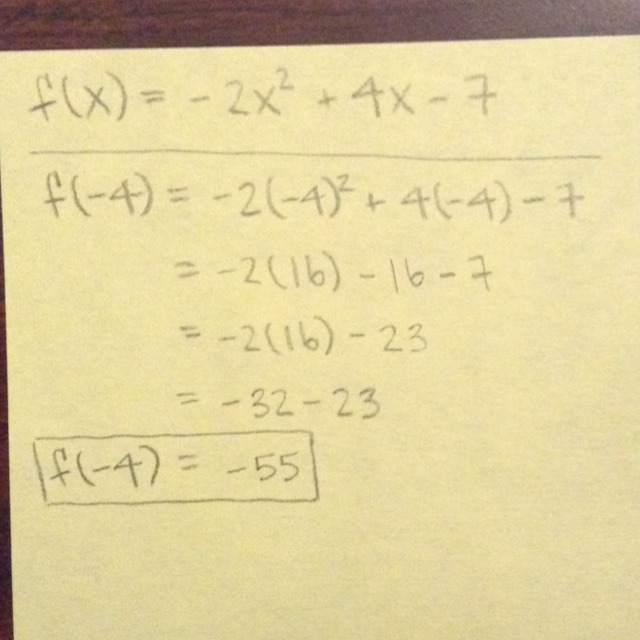 f(x) = -2x² + 4x - 7
f(-4) = -2(-4)² + 4(-4) - 7
= -2(16) - 16 - 7
= -2(16) - 23
= -32 - 23
f(-4) = -55